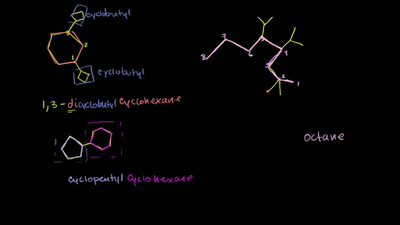 cyclobutyl
3
2
1
cyclobutyl
1,3 - dicyclobutyl cyclohexane
cyclopentyl cyclohexane
7
8
6
5
4
3
2
1
octane